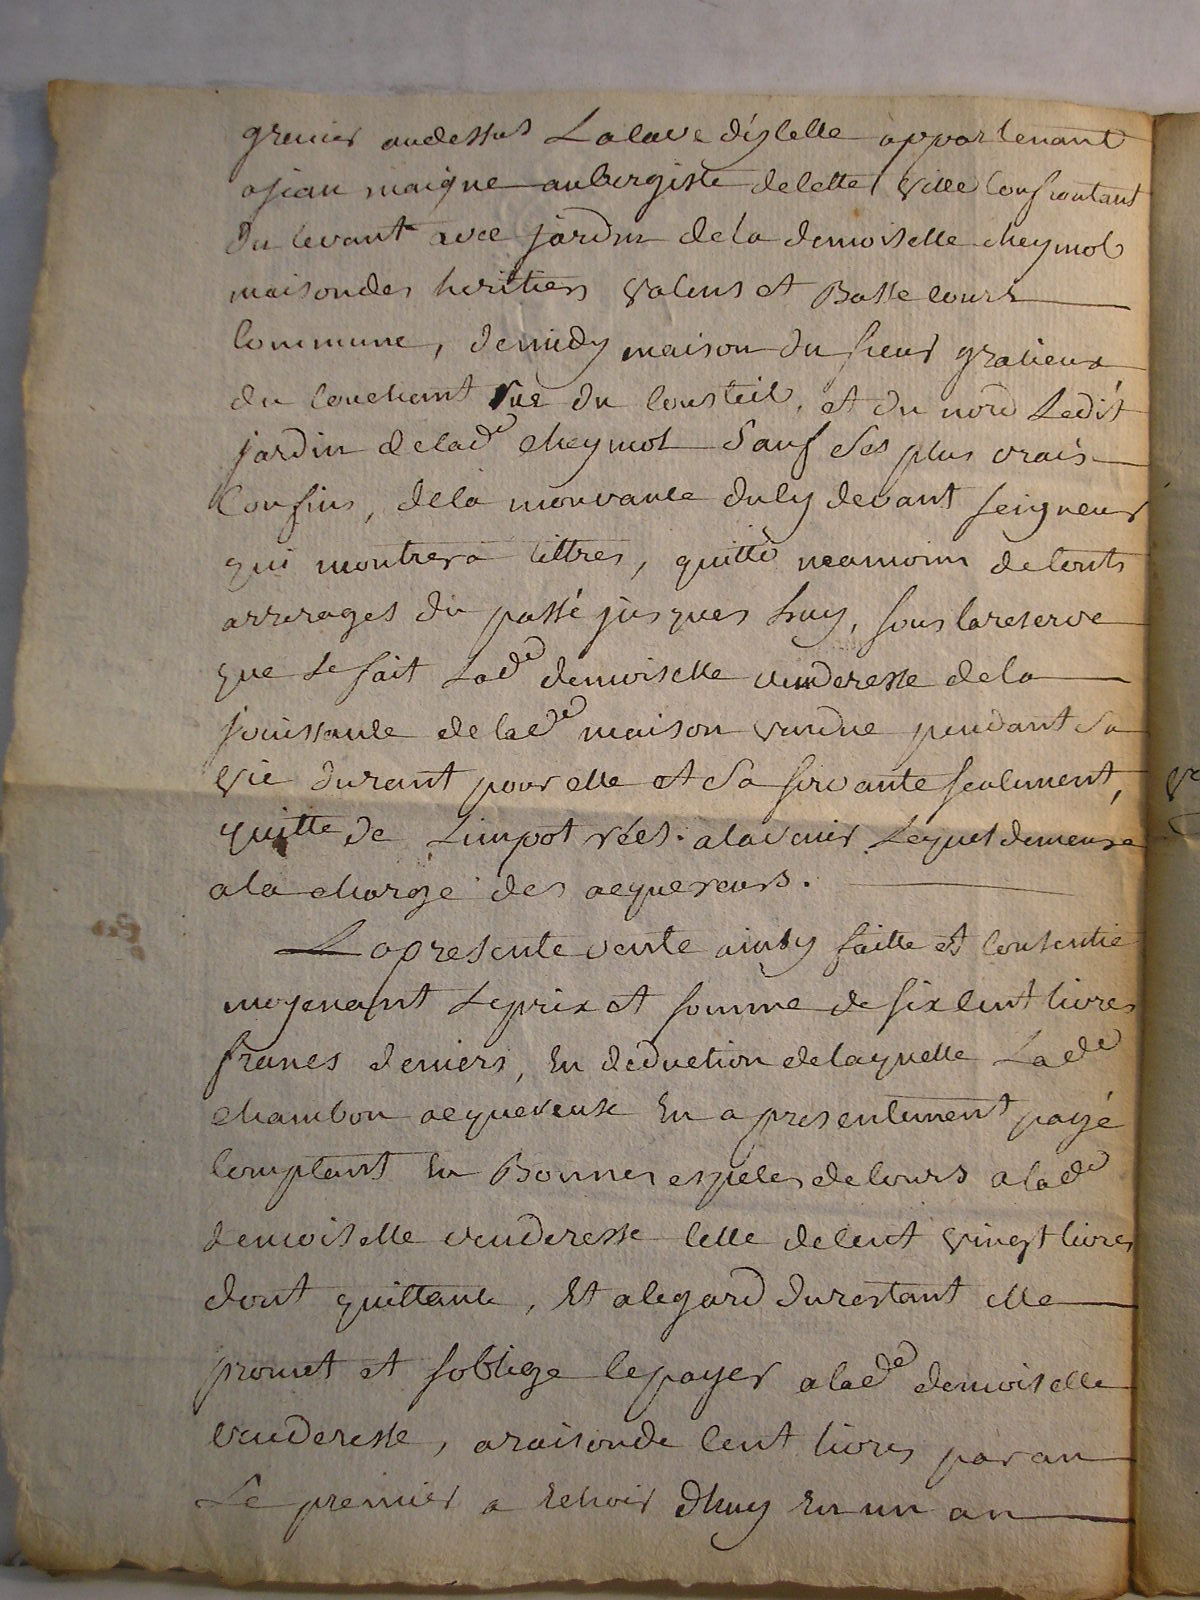 grenier audessus La cave d'ycelle appartenant
a jean maigne aubergiste de cette ville confrontant
du levant avec jardin de la demoiselle cheymol
maison des heritiers valens et Basse cour
Commune, de midy maison du sieur gratieux
du couchant rue du consteil, et du nord Ledit
jardin de lad.e cheymol Sauf ses plus vrais
Confins, de la mouvance duly devant seigneur
qui montrera tittres, quitte neamoins de touts
arrerages du passé jusques huy, sous la reserve
que se fait Lad.e demoiselle venderesse de la
jouissance de lad.e maison vendue pendant sa
vie durant pour elle et sa servante seulement,
quitte de Limpot réel a lavenir Lequel demeure
a la charge des acquereurs.
La presente vente ainsy faitte et consentie
moyenant Le prix et somme de six cent livres
francs deniers, En deduction de laquelle Lad.e
chambon acquereuse En a presentement payé
Comptant En Bonnes especes de cours a lad.e
demoiselle venderesse celle de cent vingt livres
dont quittance, Et a legard du restant elle
promet et soblige le payer a lad.e demoiselle
venderesse, a raison de cent livres par an
Le premier a Echoir dhuy En un an